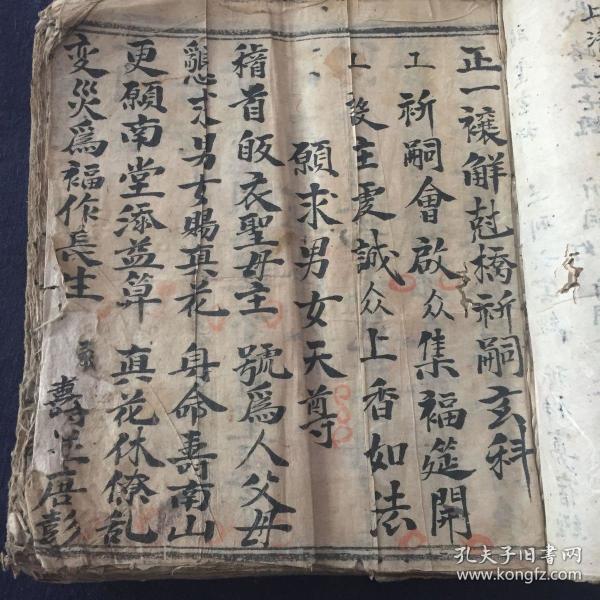 正一禳解尅橋祈嗣玄科
工 祈嗣會啟众集福筵開
工 設主虔誠众上香如法
願求男女天尊
稽首皈衣聖母主 號爲人父母
懇求男女賜真花 身命壽南山
更願南堂添益算 真花休僚乱
变災爲福作長生 壽生唐彭
孔夫子旧书网
www.kongfz.com